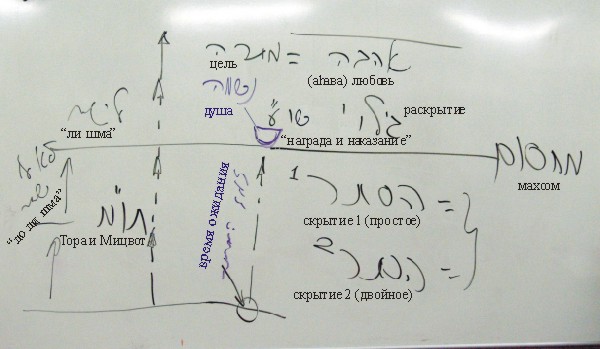 אהבה = מטרה
цель (аhава) любовь
נשמה
душа
לשמה
גילוי שו"ע
раскрытие
“ли шма”
“награда и наказание”
מחסום
махсом
לא לשמה
“ло ли шма”
תו"מ
Тора и Мицвот
время ожидания
= הסתר 1
скрытие 1 (простое)
= הסתר 2
скрытие 2 (двойное)